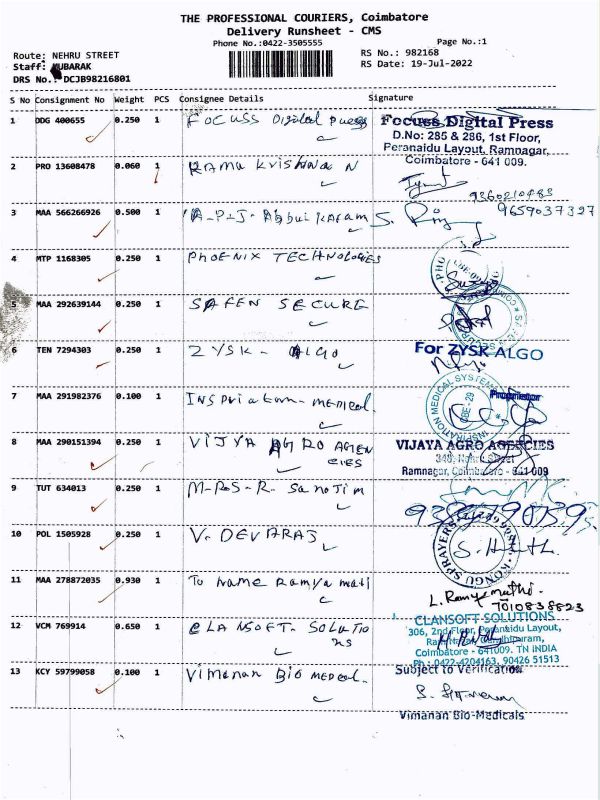 THE PROFESSIONAL COURIERS, Coimbatore
Delivery Runsheet - CMS
Phone No.:0422-3505555
Page No.:1
Route: NEHRU STREET
RS No.: 982168
Staff: MUBARAK
RS Date: 19-Jul-2022
DRS No.: DCJB98216801
S No Consignment No Weight PCS Consignee Details Signature
1 DDG 400655 0.250 1 FOCUSS Digital Press
Focuss Digital Press
D.No: 285 & 286, 1st Floor,
Peranaidu Layout, Ramnagar,
Coimbatore - 641 009.
2 PRO 13608478 0.060 1 RAMA KRISHNA N
9360210483
3 MAA 566266926 0.500 1 A-P-J- Abdul Karam S.
9659037327
4 MTP 1168305 0.250 1 PHOENIX TECHNOLOGIES
5 MAA 292639144 0.250 1 SAFEN SECURE
6 TEN 7294303 0.250 1 ZYSK - ALGO
For ZYSK ALGO
Proprietor
7 MAA 291982376 0.100 1 INSPriation - MEDICAL.
INSPIRATION MEDICAL SYSTEMS
CBE - 29
8 MAA 290151394 0.250 1 VIJYA AGRO AGEN
CIES
VIJAYA AGRO AGENCIES
348, Nehru Street
Ramnagar, Coimbatore - 641 009
9 TUT 634013 0.250 1 M-R-S-R- Sanojim
10 POL 1505928 0.250 1 V. DEVARAJ
KONGU SPRAYERS
11 MAA 278872035 0.930 1 To Name Ramya mati
L. Ramya
7010838823
12 VCM 769914 0.650 1 CLANSOFT- SOLUTIO
NS
CLANSOFT SOLUTIONS
306, 2nd Floor, Peranaidu Layout,
Ram Nagar, Gandhipuram,
Coimbatore - 641009. TN INDIA
Ph : 0422-4204163, 90426 51513
13 KCY 59799058 0.100 1 Vimanan Bio MEDICAL.
Subject to Verification
Vimanan Bio-Medicals